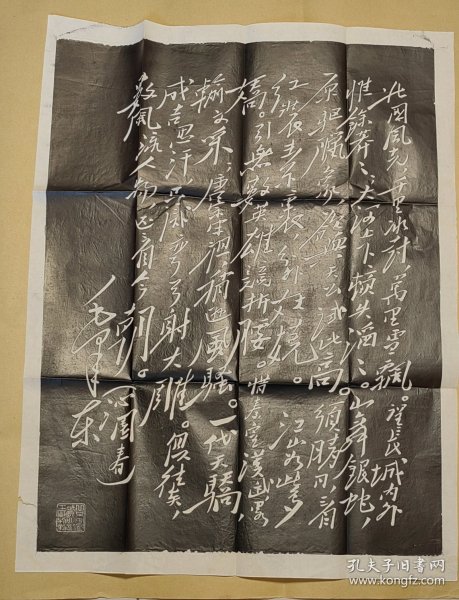 北国风光，千里冰封，万里雪飘。望长城内外，
惟馀莽莽；大河上下，顿失滔滔。山舞银蛇，
原驱腊象，欲与天公试比高。须晴日，看
红装素裹，分外妖娆。江山如此多
娇。引无数英雄竞折腰。惜秦皇汉武，略
输文采；唐宗宋祖，稍逊风骚。一代天骄，
成吉思汗，只识弯弓射大雕。俱往矣，
数风流人物，还看今朝。沁园春
毛泽东
孔夫子旧书网
https://www.kongfz.com